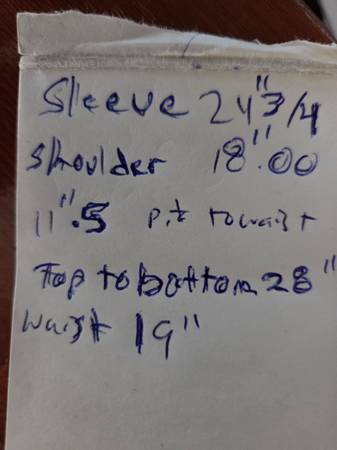 Sleeve 24"3/4
Shoulder 18".00
11".5 pit to waist
Top to bottom 28"
waist 19"